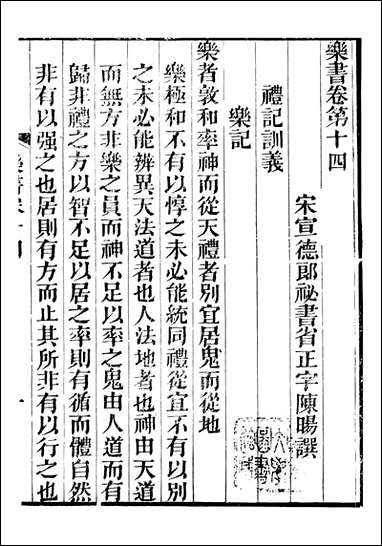 樂書卷第十四
宋宣德郎祕書省正字陳暘譔
禮記訓義
樂記
樂者敦和率神而從天禮者別宜居鬼而從地
樂極和不有以惇之未必能統同禮從宜不有以別
之未必能辨異天法道者也人法地者也神由天道
而無方非樂之員而神不足以率之鬼由人道而有
歸非禮之方以智不足以居之率則有循而體自然
非有以强之也居則有方而止其所非有以行之也